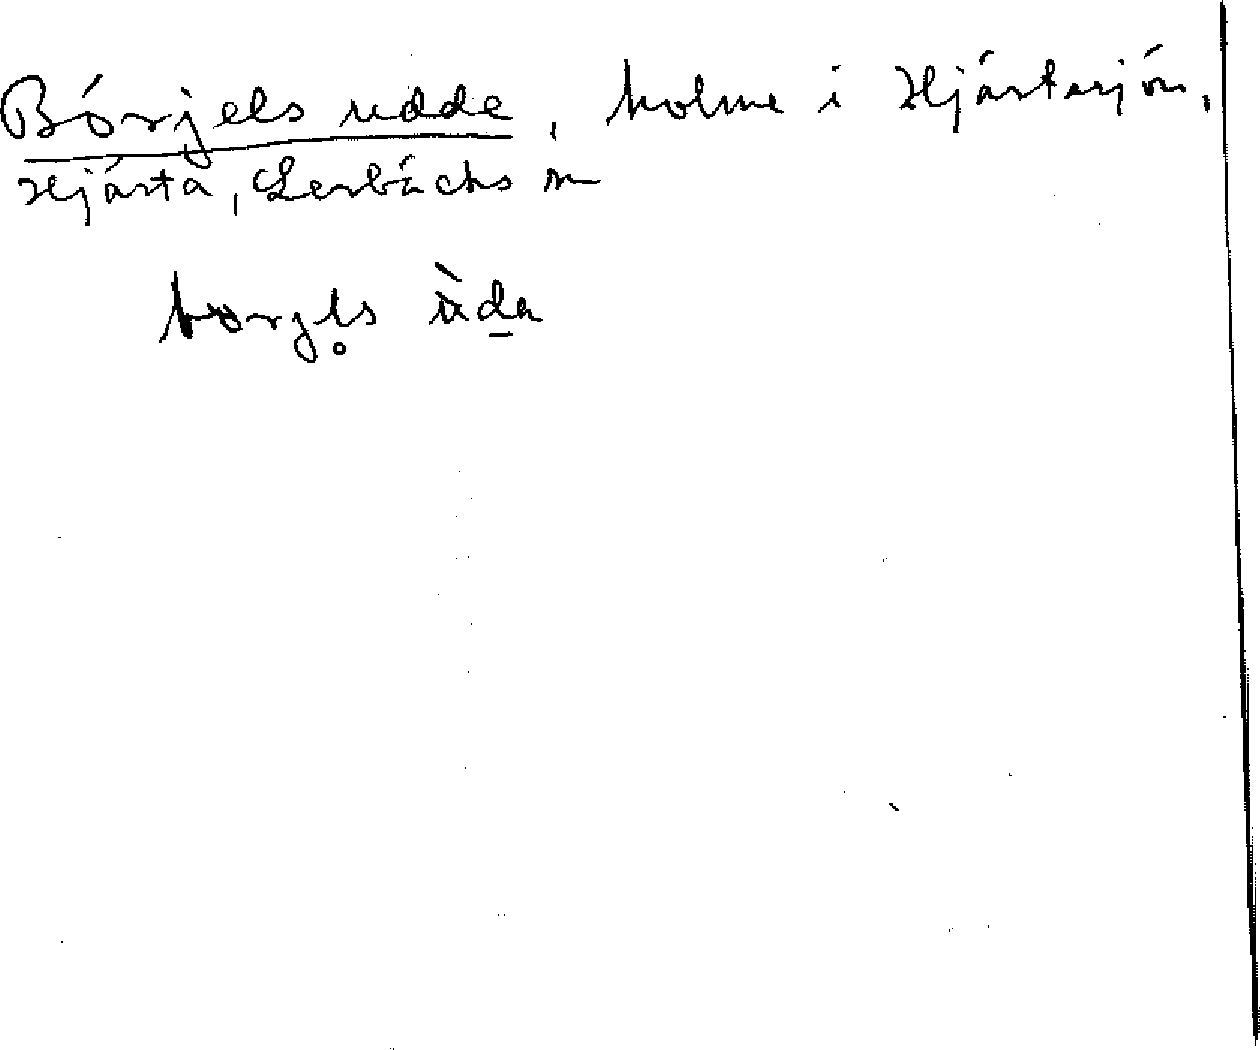 Börjels udde, holme i Hjärtasjön,
Hjärta, Lerbäcks sn
börjl̥s ùda